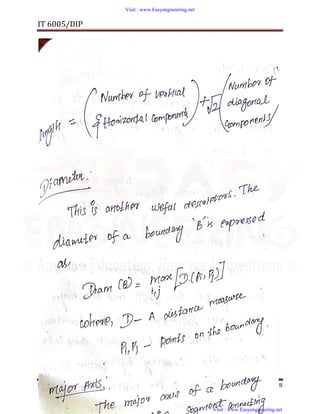 Visit : www.Easyengineering.net
IT 6005/DIP
length = (Number of vertical & Horizontal Components) + √2 (Number of diagonal Components)
Diameter:
This is another useful descriptors. The
diameter of a boundary 'B' is expressed
as
Diam (B) = max i,j [D(Pi, Pj)]
where, D - A distance measure
Pi, Pj - points on the boundary.
major Axis.
8
The major axis of a boundary
segment connecting
Visit : www.Easyengineering.net